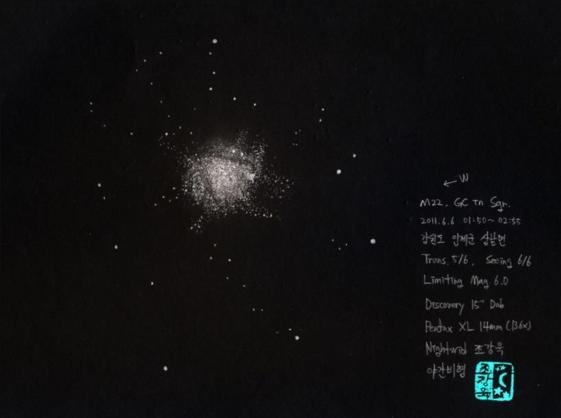 ← W
M22. GC in Sgr.
2011.6.6 01:50~02:55
강원도 인제군 상남면
Trans. 5/6, Seeing 6/6
Limiting Mag 6.0
Discovery 15" Dob
Pentax XL 14mm (136x)
Nightwid 조강욱
야간비행
조강욱